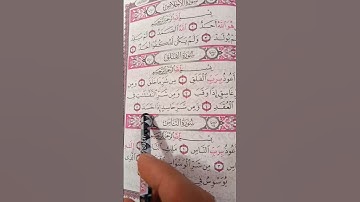 سُورَةُ الإِخْلَاصِ
هُوَ اللَّهُ أَحَدٌ ۝ اللَّهُ الصَّمَدُ ۝ لَمْ يَلِدْ وَلَمْ
يُولَدْ ۝ وَلَمْ يَكُن لَّهُ كُفُوًا أَحَدٌ ۝
سُورَةُ الْفَلَقِ
أَعُوذُ بِرَبِّ الْفَلَقِ ۝ مِن شَرِّ مَا خَلَقَ ۝ وَمِن
غَاسِقٍ إِذَا وَقَبَ ۝ وَمِن شَرِّ النَّفَّاثَاتِ فِي
الْعُقَدِ ۝ وَمِن شَرِّ حَاسِدٍ إِذَا حَسَدَ ۝
سُورَةُ النَّاسِ
أَعُوذُ بِرَبِّ النَّاسِ ۝ مَلِكِ النَّاسِ
مِن شَرِّ الْوَسْوَاسِ
يُوَسْوِسُ فِي